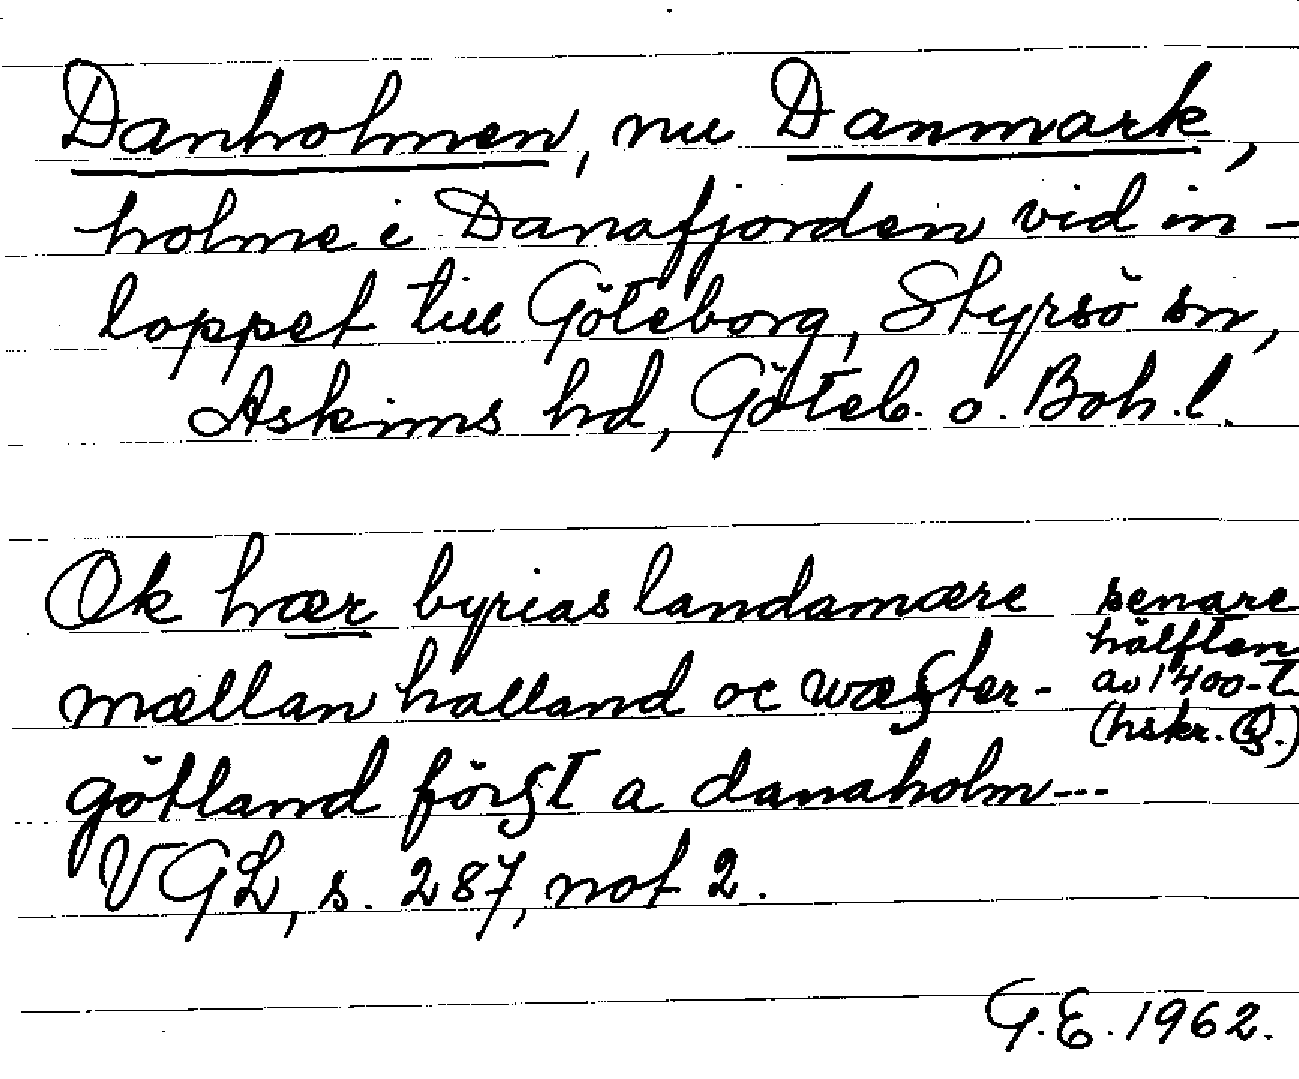 Danholmen, nu Danmark,
holme i Danafjorden vid in-
loppet till Göteborg, Styrsö sn,
Askims hd, Göteb. o. Boh. l.
Ok hær byrias landamære
mællan halland oc wæster-
götland först a danaholm---
VGL, s. 287, not 2.
senare
hälften
av 1400-t.
(hskr. Q.)
G.E. 1962.